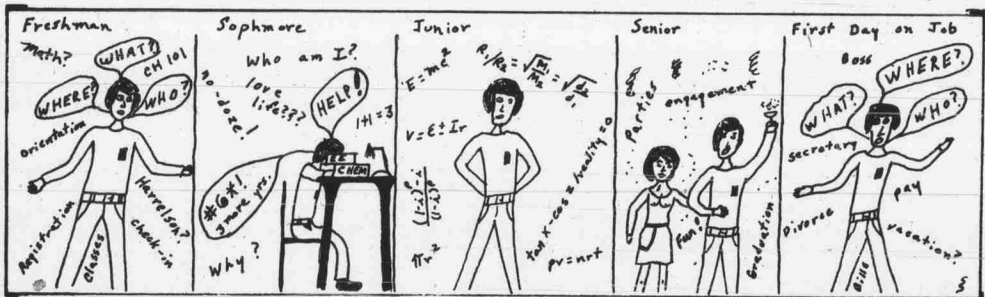 Freshman
Math?
WHAT?
CH 101
WHERE?
WHO?
orientation
Harrelson?
Registration
Classes
check-in
Sophmore
Who am I?
no-doze!
love
life???
HELP!
1+1=3
EE
CHEM
#@*!
3 more yrs.
Why?
Junior
V=E±Ir
πr²
xan x-cos = reality=0
pv=nrt
Senior
Parties
engagement
Fun!
Graduation
First Day on Job
Boss
WHERE?
WHAT?
WHO?
secretary
pay
Divorse
vacation?
Bills